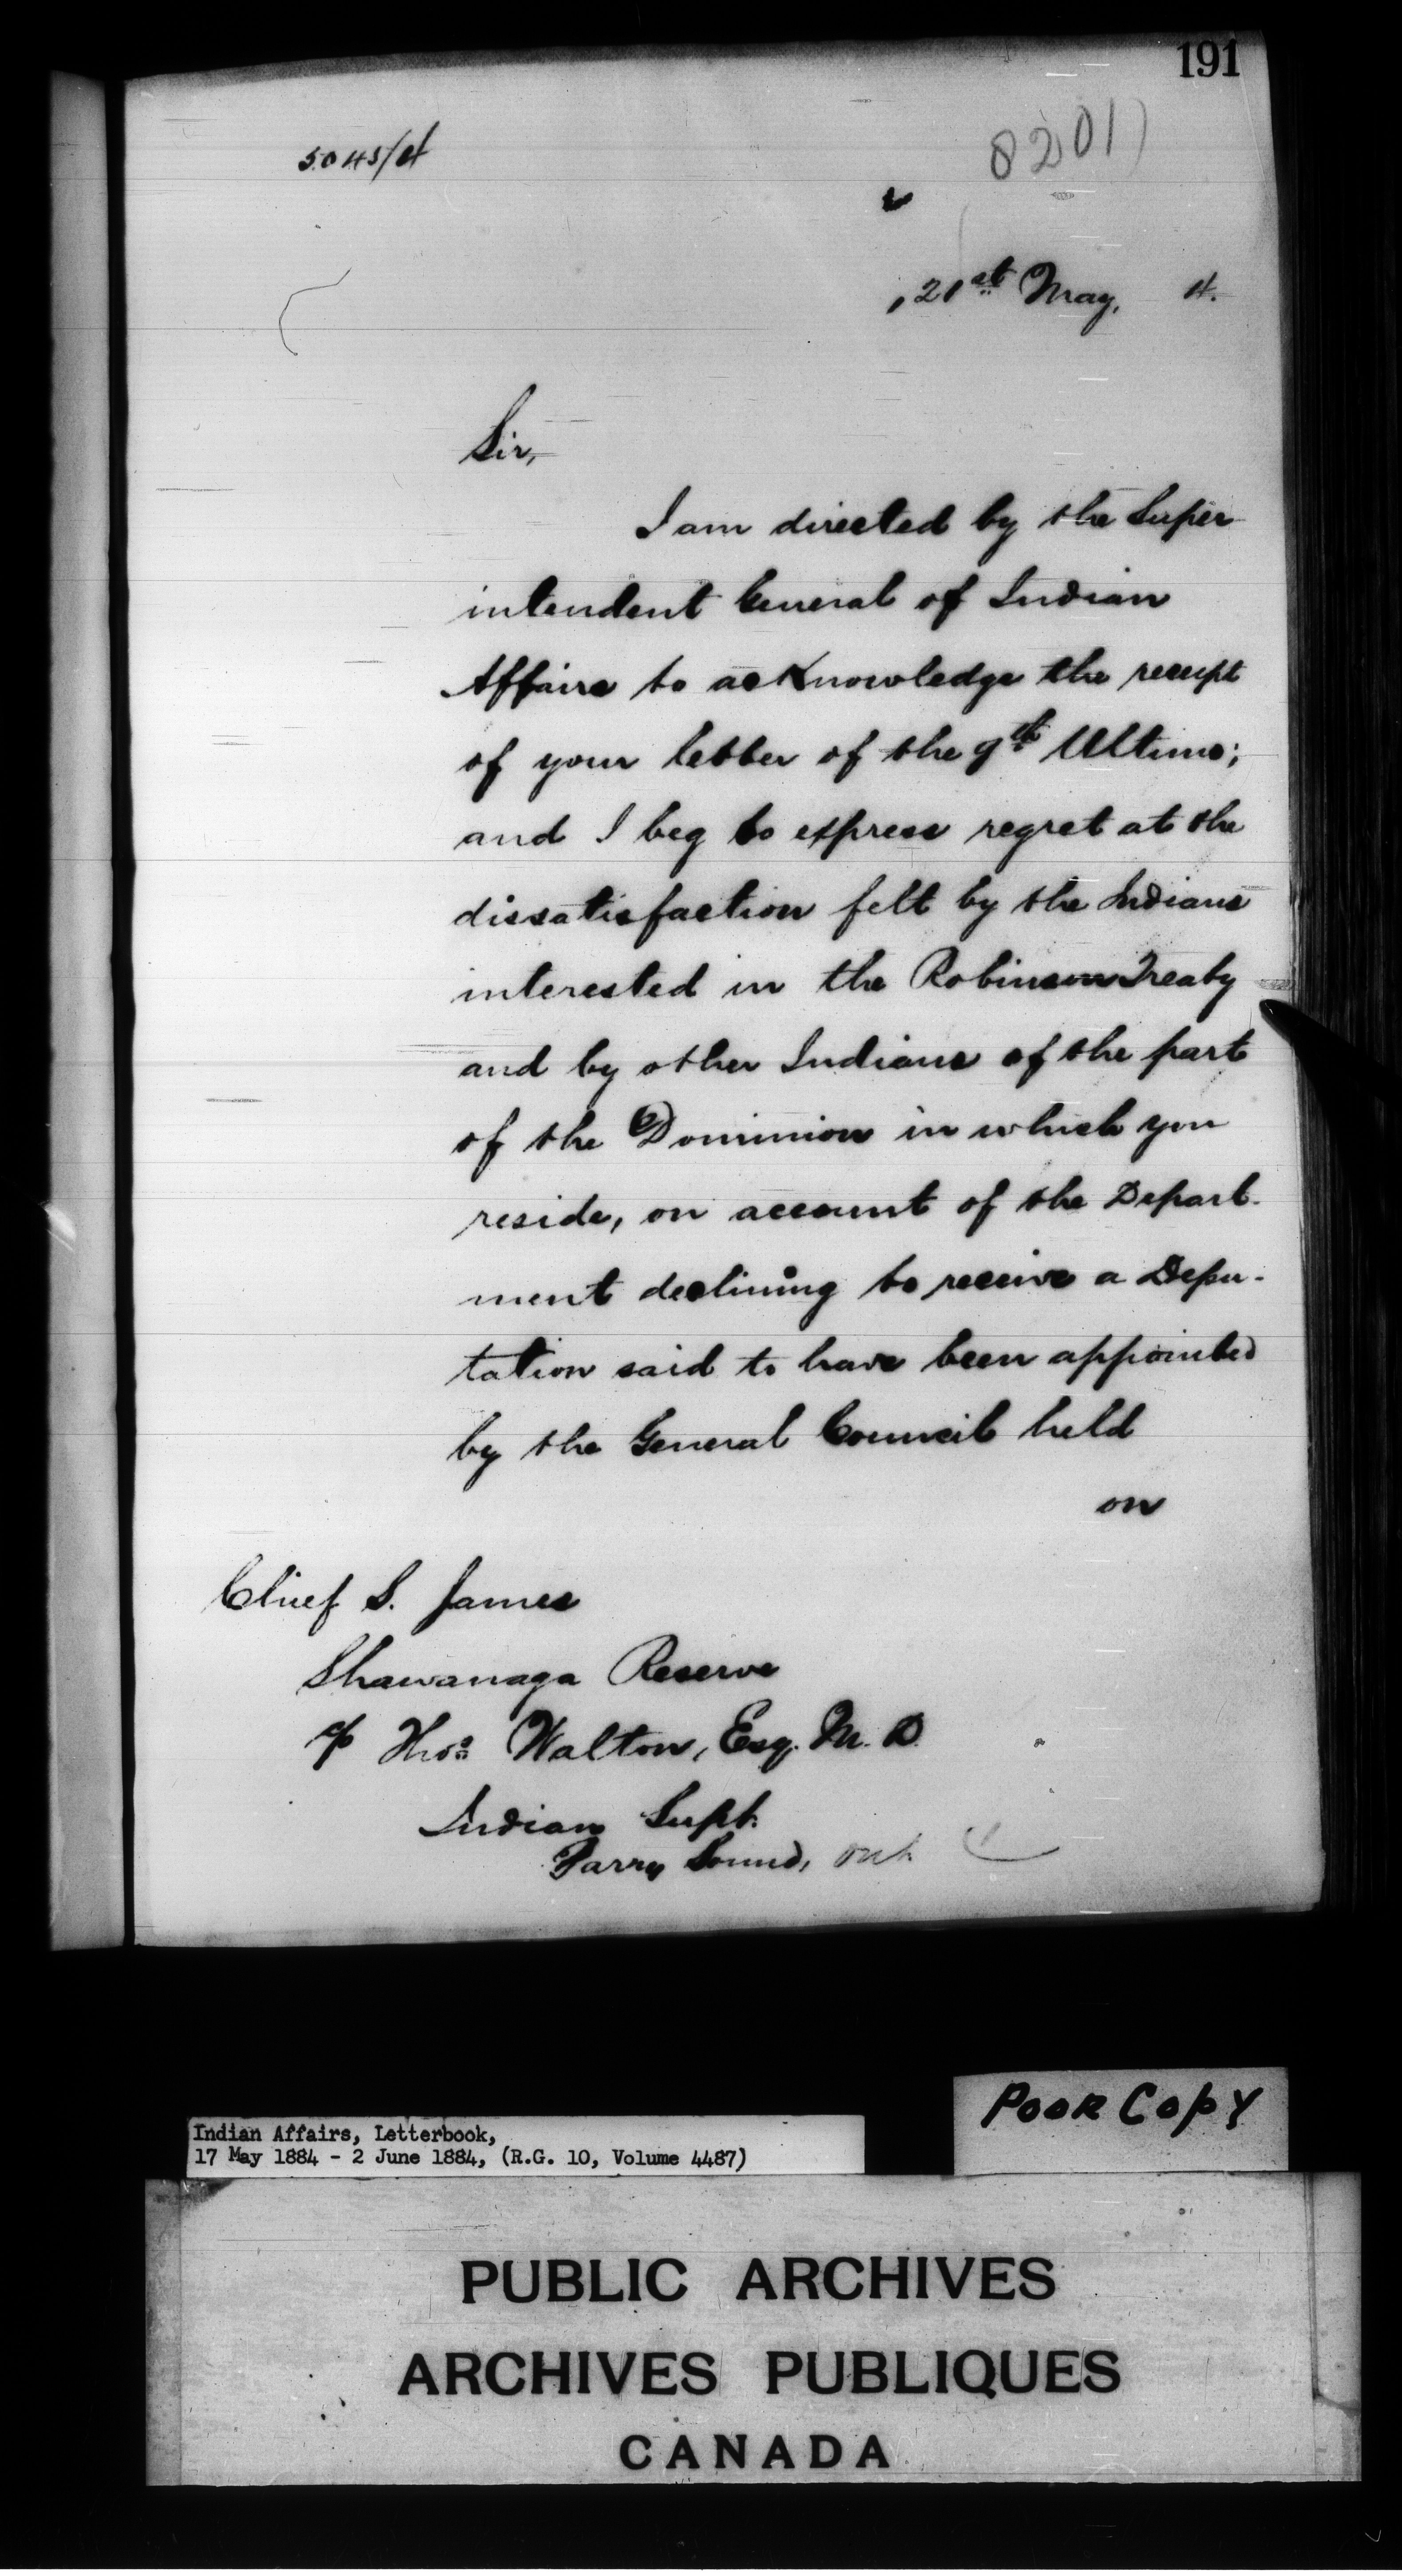 191
8201
21st May, 4.
Sir,
I am directed by the Super
intendent General of Indian
Affairs to acknowledge the receipt
of your letter of the 9th Ultimo;
and I beg to express regret at the
dissatisfaction felt by the Indians
interested in the Robinson Treaty
and by other Indians of the part
of the Dominion in which you
reside, on account of the Depart-
ment declining to receive a Depu-
tation said to have been appointed
by the General Council held
on
Chief S. James
Shawanaga Reserve
c/o Thos. Walton, Esq. M. D.
Indian Supt.
Parry Sound, Ont.
Poor Copy
Indian Affairs, Letterbook,
17 May 1884 - 2 June 1884, (R.G. 10, Volume 4487)
PUBLIC ARCHIVES
ARCHIVES PUBLIQUES
CANADA